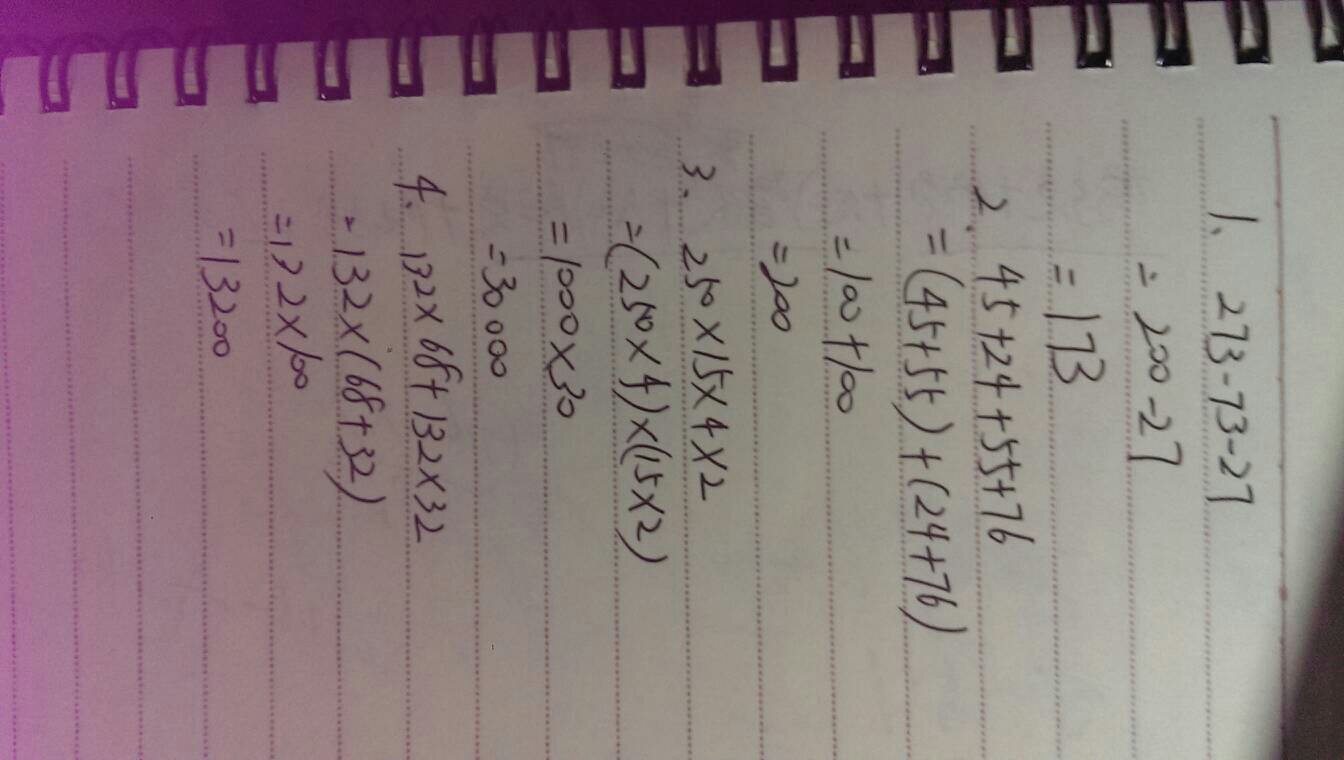 1. 273-73-27
= 200-27
= 173
2. 45+24+55+76
= (45+55)+(24+76)
= 100+100
= 200
3. 250×15×4×2
= (250×4)×(15×2)
= 1000×30
= 30000
4. 132×68+132×32
= 132×(68+32)
= 132×100
= 13200